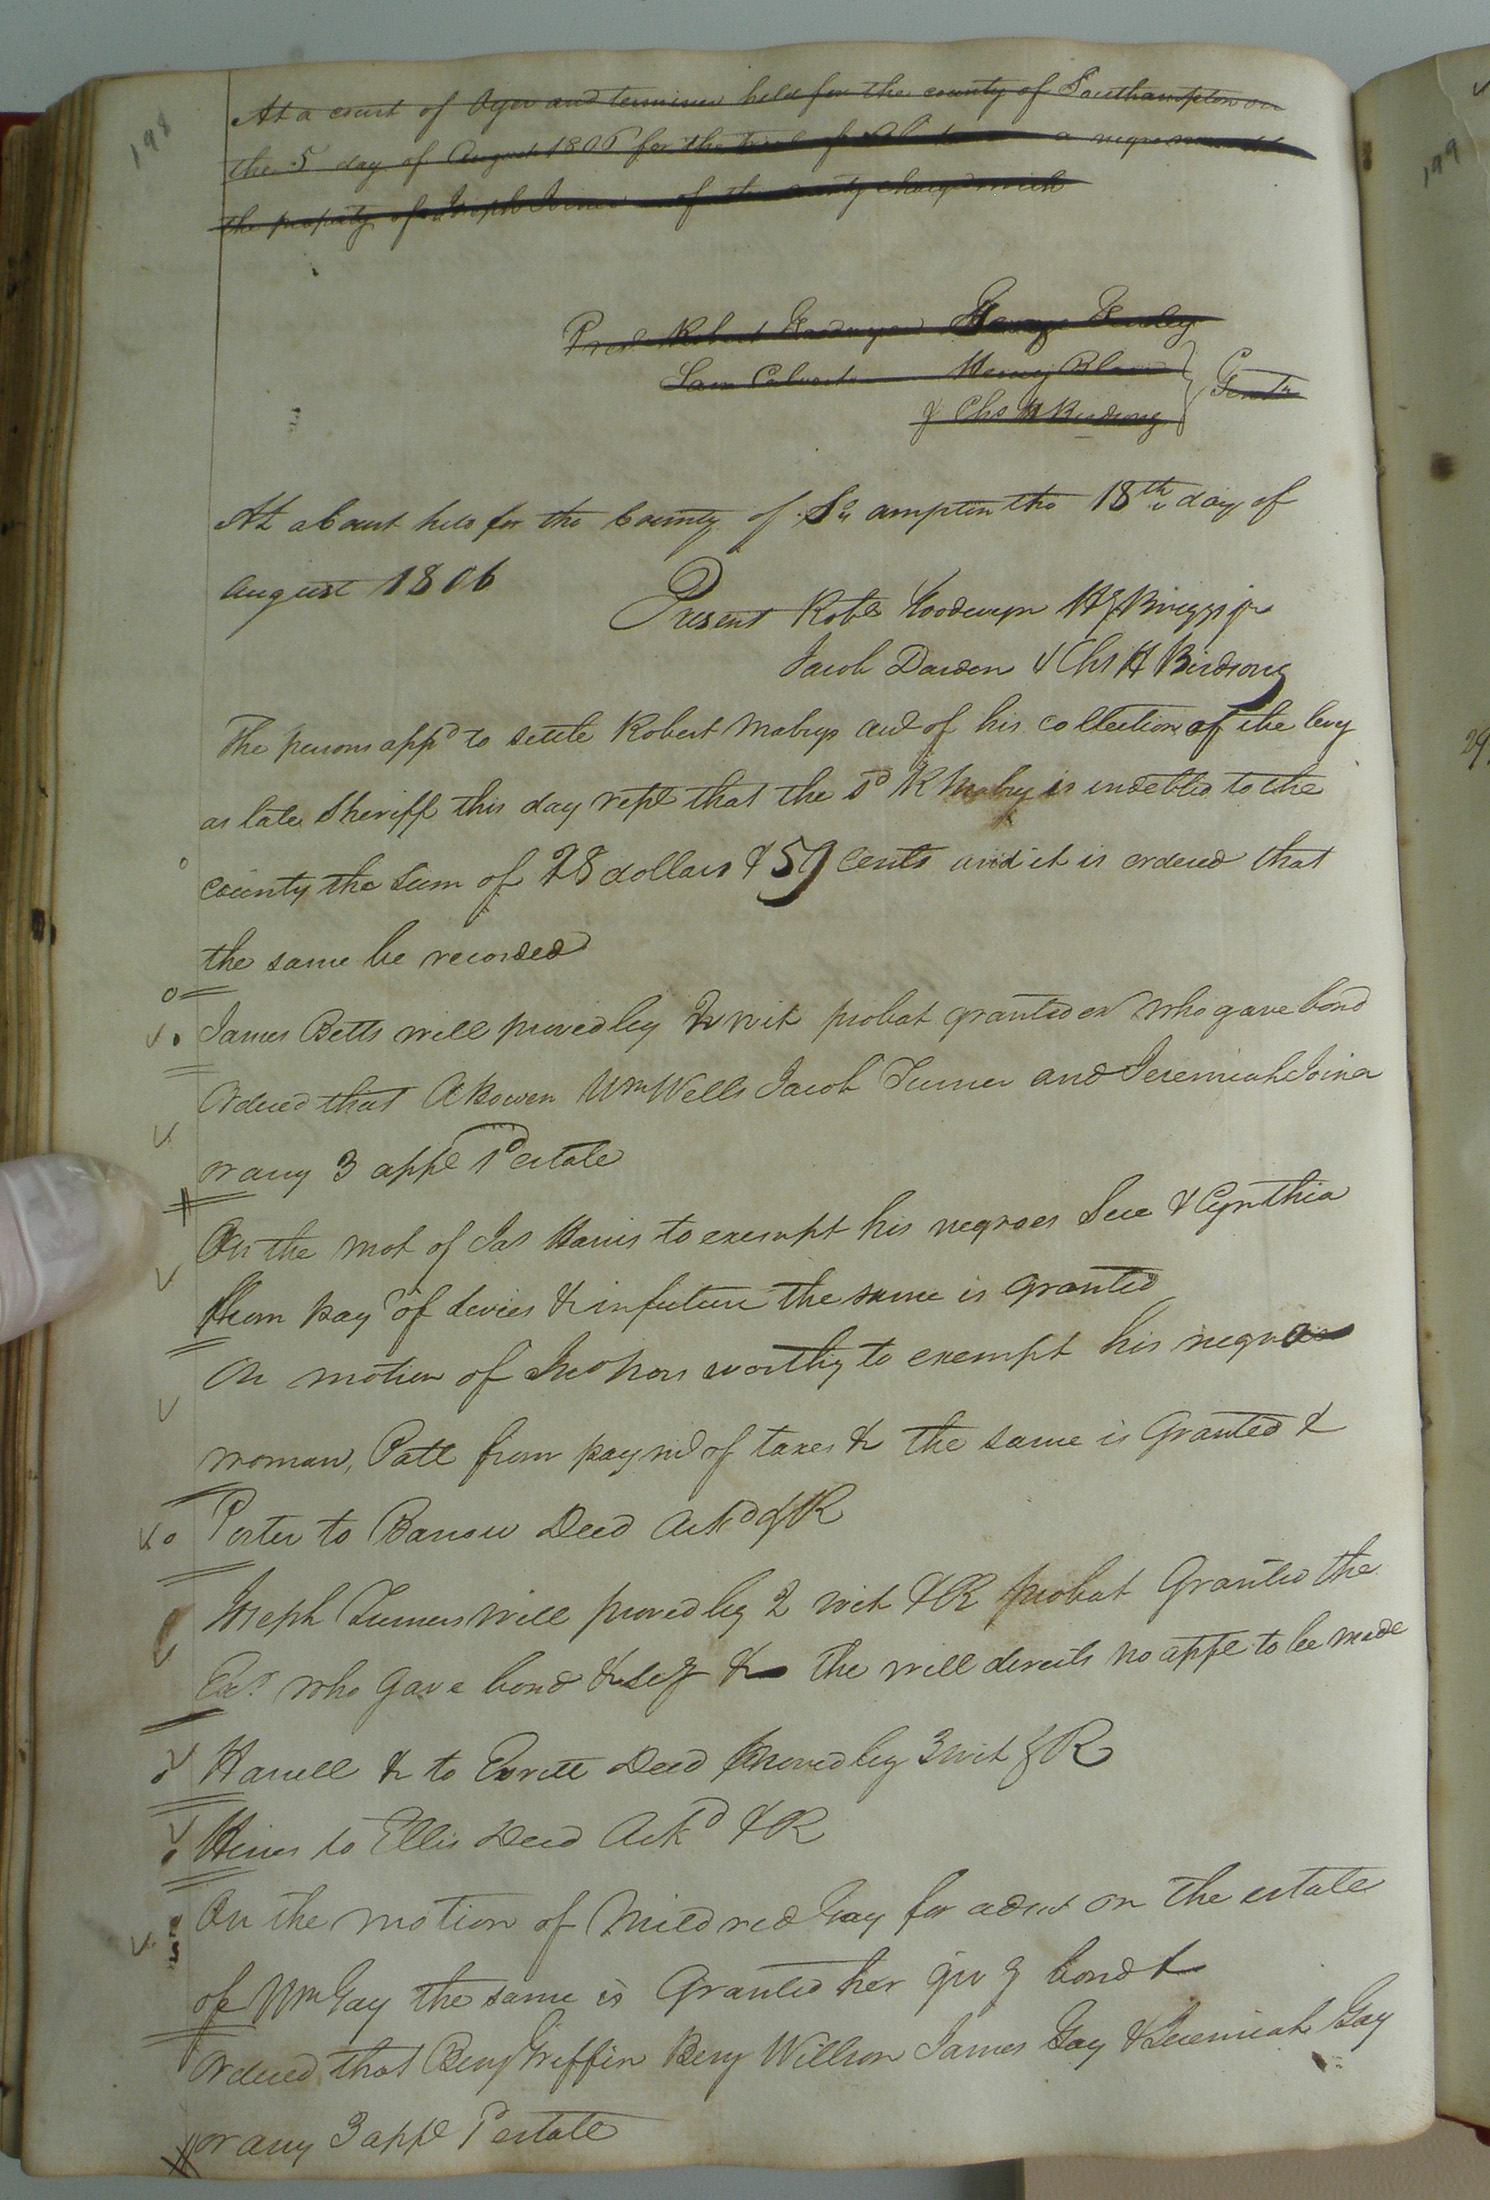 198
At a court of Oyer and terminer held for the county of Southampton on
the 5 day of August 1806 for the trial of a negro man
the property of Joseph of the county charged with
Pres. Robert Goodwyn George Gurley
Sam Calvert Henry Blow
& Chs H Birdsong
Gent
At a Court held for the County of So ampton the 18th day of
August 1806
Present Robt Goodwyn HJ Briggs jr
Jacob Darden & Chs H Birdsong
The persons appd to settle Robert Mabrys acct of his collection of the levy
as late Sheriff this day rept that the sd R Mabry is indebted to the
county the sum of 28 dollars & 59 cents and it is ordered that
the same be recorded
James Betts will proved by 2 wit probat granted ex who gave bond
Ordered that A Bowen Wm Wells Jacob Turner and Jeremiah Joiner
or any 3 appe sd estate
On the mot of Jas Harris to exempt his negroes Sue & Cynthia
from pay of levies & in future the same is granted
On motion of Jno Norsworthy to exempt his negro
woman, Patt from paymt of taxes & the same is Granted &
Porter to Barrow Deed Ackd & R
Joseph Turners will proved by 2 wit & R probat Granted the
Exr who gave bond & sey & the will directs no appe to be made
Harrell & to Everett Deed proved by 3 wit & R
Hines to Ellis Deed Ackd & R
On the motion of Mildred Gay for admt on the estate
of Wm Gay the same is Granted her giv g bond &
Ordered that Benj Griffin Benj Willson James Gay & Jeremiah Gay
or any 3 appe estate
199